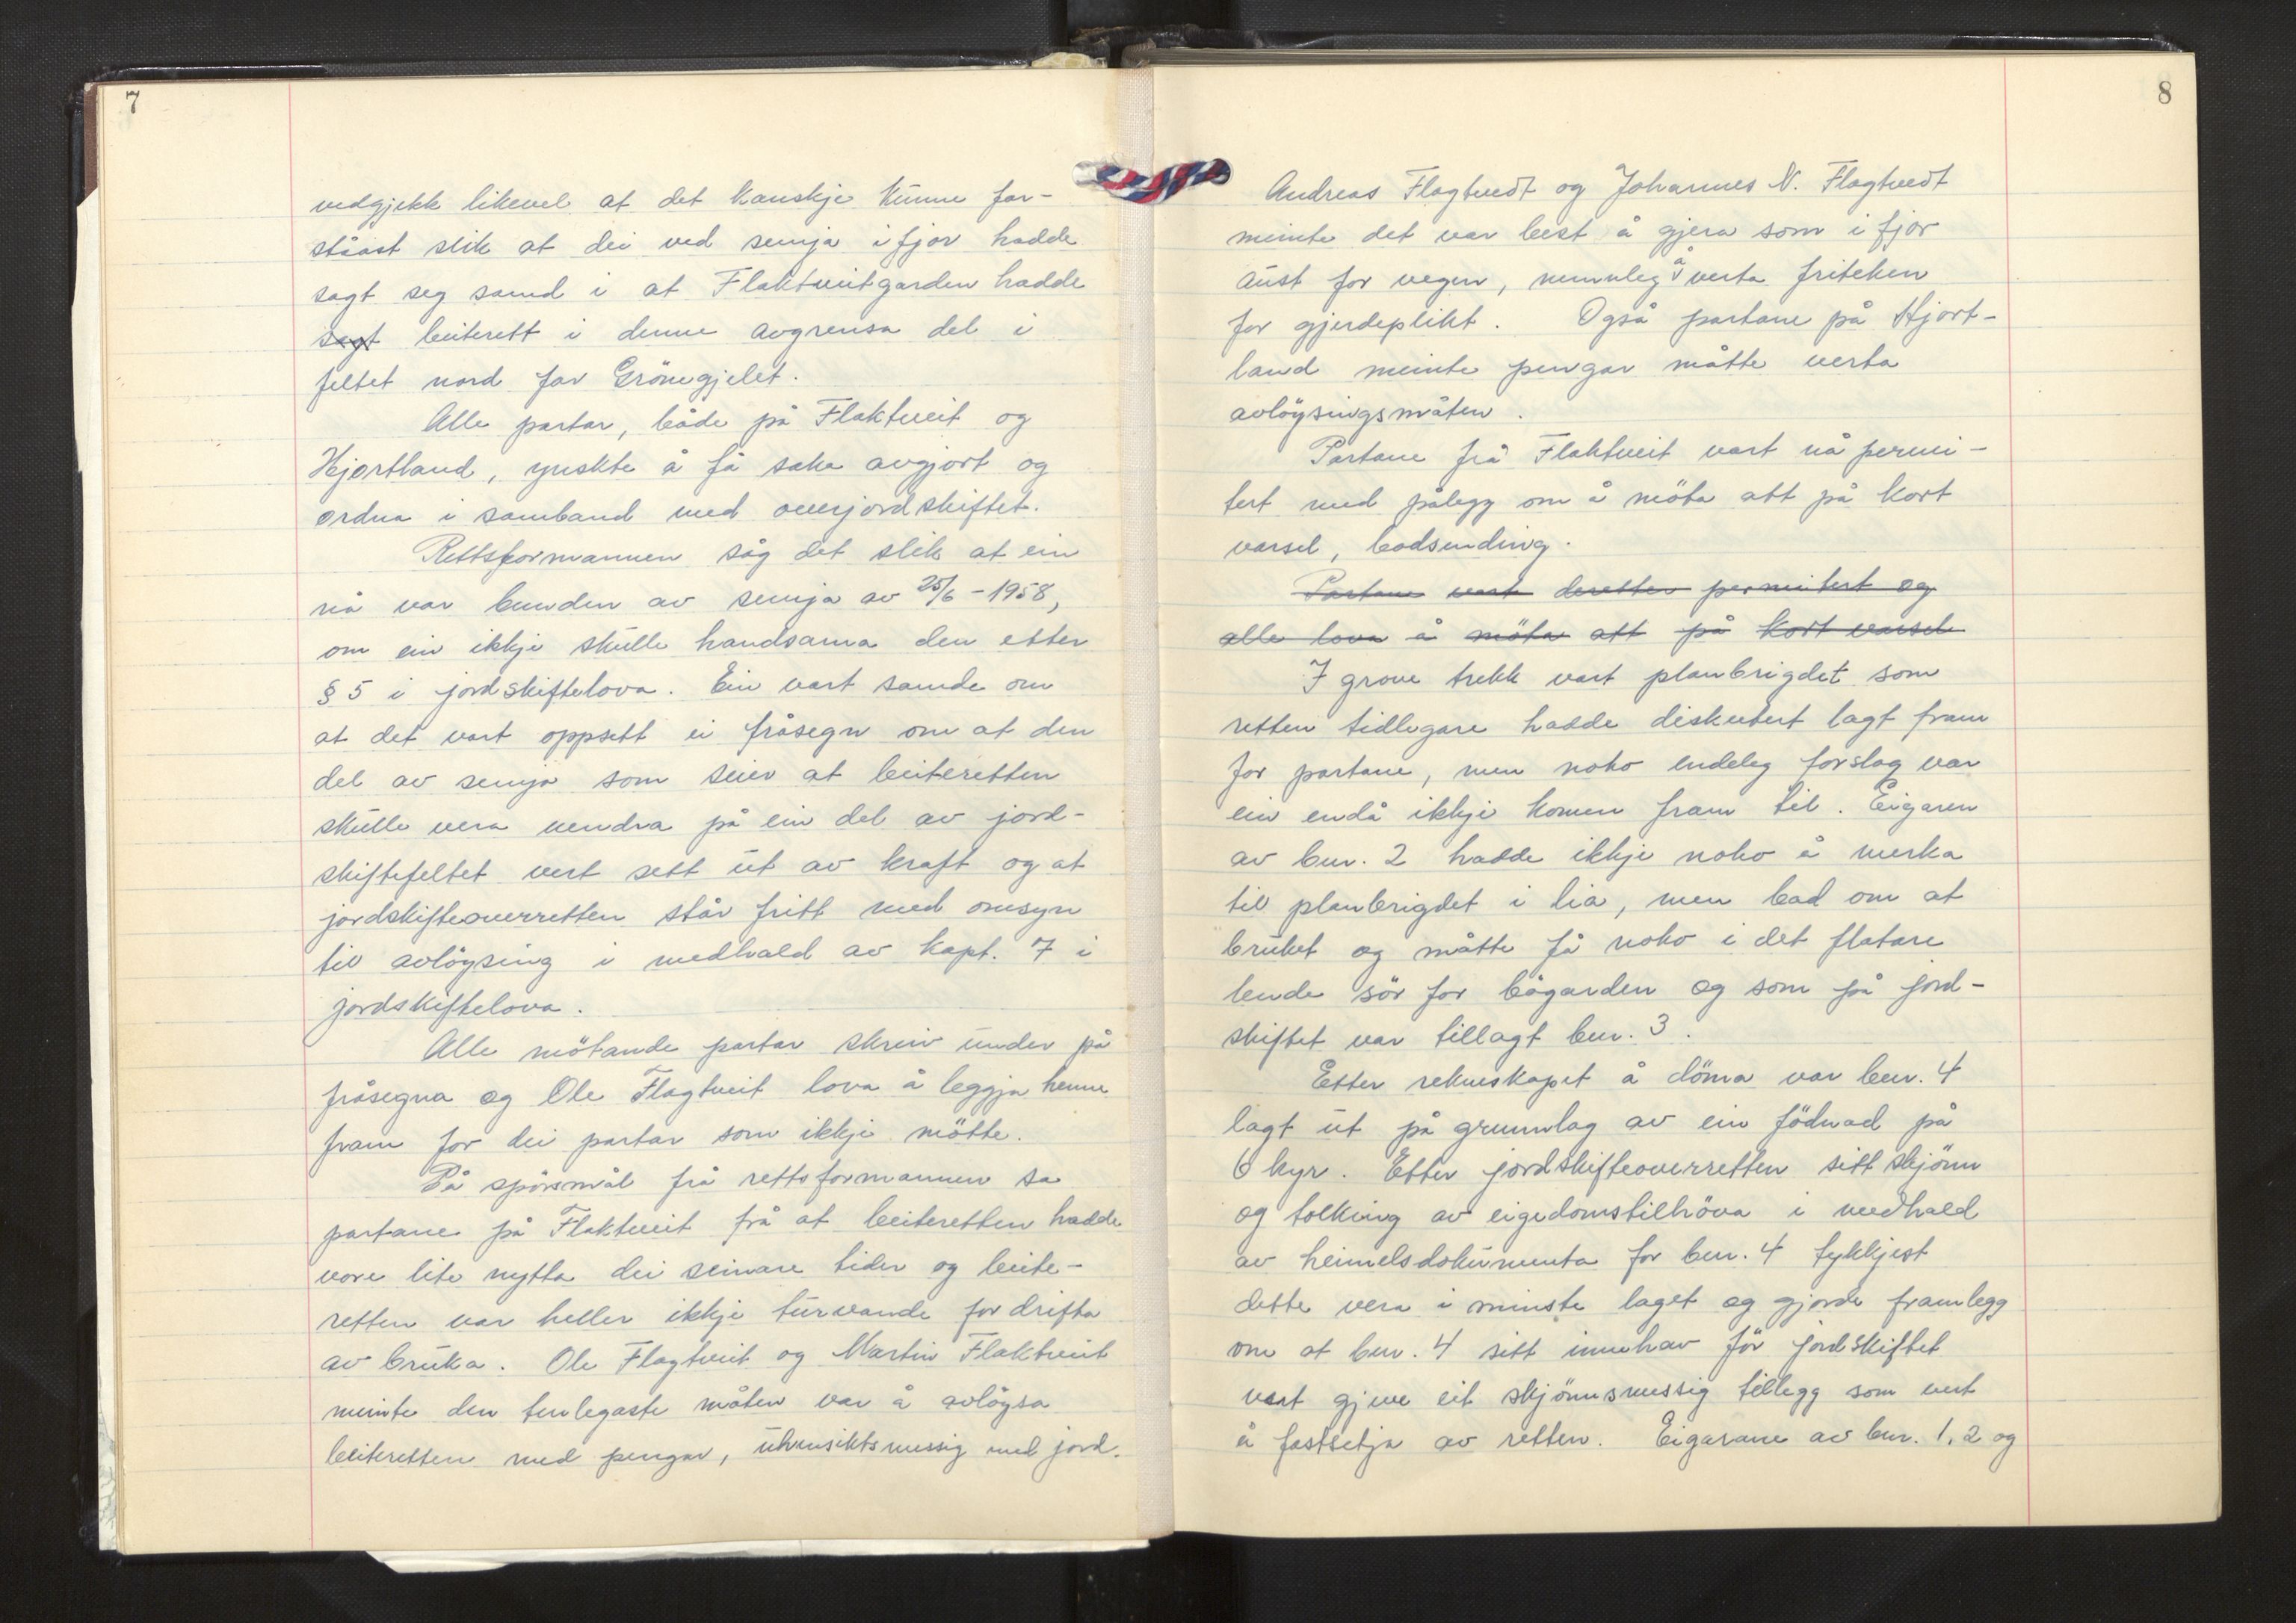 7
vedgjekk likevel at det kanskje kunne for-
ståast slik at dei ved semja i fjor hadde
sagt seg samd i at Flaktveitgarden hadde
sagt beiterett i denne avgrensa del i
feltet nord for Grönegjelet.
Alle partar, både på Flaktveit og
Hjortland, ynskte å få saka avgjort og
ordna i samband med overjordskiftet.
Rettsformannen såg det slik at ein
nå var bunden av semja av 25/6 - 1958,
om ein ikkje skulle handsama den etter
§ 5 i jordskiftelova. Ein vart samde om
at det vart oppsett ei fråsegn om at den
del av semja som seier at beiteretten
skulle vera uendra på ein del av jord-
skiftefeltet vert sett ut av kraft og at
jordskifteoverretten står fritt med omsyn
til avlöysing i medhald av kapt. 7 i
jordskiftelova.
Alle mötande partar skreiv under på
fråsegna og Ole Flagtveit lova å leggja henne
fram for dei partar som ikkje mötte.
På spörsmål frå rettsformannen sa
partane på Flaktveit frå at beiteretten hadde
vore lite nytta dei seinare tider og beite-
retten var heller ikkje turvande for drifta
av bruka. Ole Flagtveit og Martin Flaktveit
meinte den tenlegaste måten var å avlöysa
beiteretten med pengar, uhensiktsmessig med jord.
8
Andreas Flagtvedt og Johannes N. Flagtvedt
meinte det var best å gjera som i fjor
aust for vegen, nemnleg å verta friteken
for gjerdeplikt. Også partane på Hjort-
land meinte pengar måtte verta
avlöysingsmåten.
Partane frå Flaktveit vart nå permi-
tert med pålegg om å möta att på kort
varsel, bodsending.
Partane vart deretter permitert og
alle lova å möta att på kort varsel
I grove trekk vart planbrigdet som
retten tidlegare hadde diskutert lagt fram
for partane, men noko endeleg forslag var
ein endå ikkje komen fram til. Eigaren
av bnr. 2 hadde ikkje noko å merka
til planbrigdet i lia, men bad om at
bruket og måtte få noko i det flatare
lende sör for bögarden og som på jord-
skiftet var tillagt bnr. 3.
Etter rekneskapet å döma var bnr. 4
lagt ut på grunnlag av ein födnad på
6 kyr. Etter jordskifteoverretten sitt skjönn
og tolking av eigedomstilhöva i medhald
av heimelsdokumenta for bnr. 4 tykkjest
dette vera i minste laget og gjorde framlegg
om at bnr. 4 sitt innehav för jordskiftet
vart gjeve eit skjönnsmessig tillegg som vert
å fastsetja av retten. Eigarane av bnr. 1, 2 og